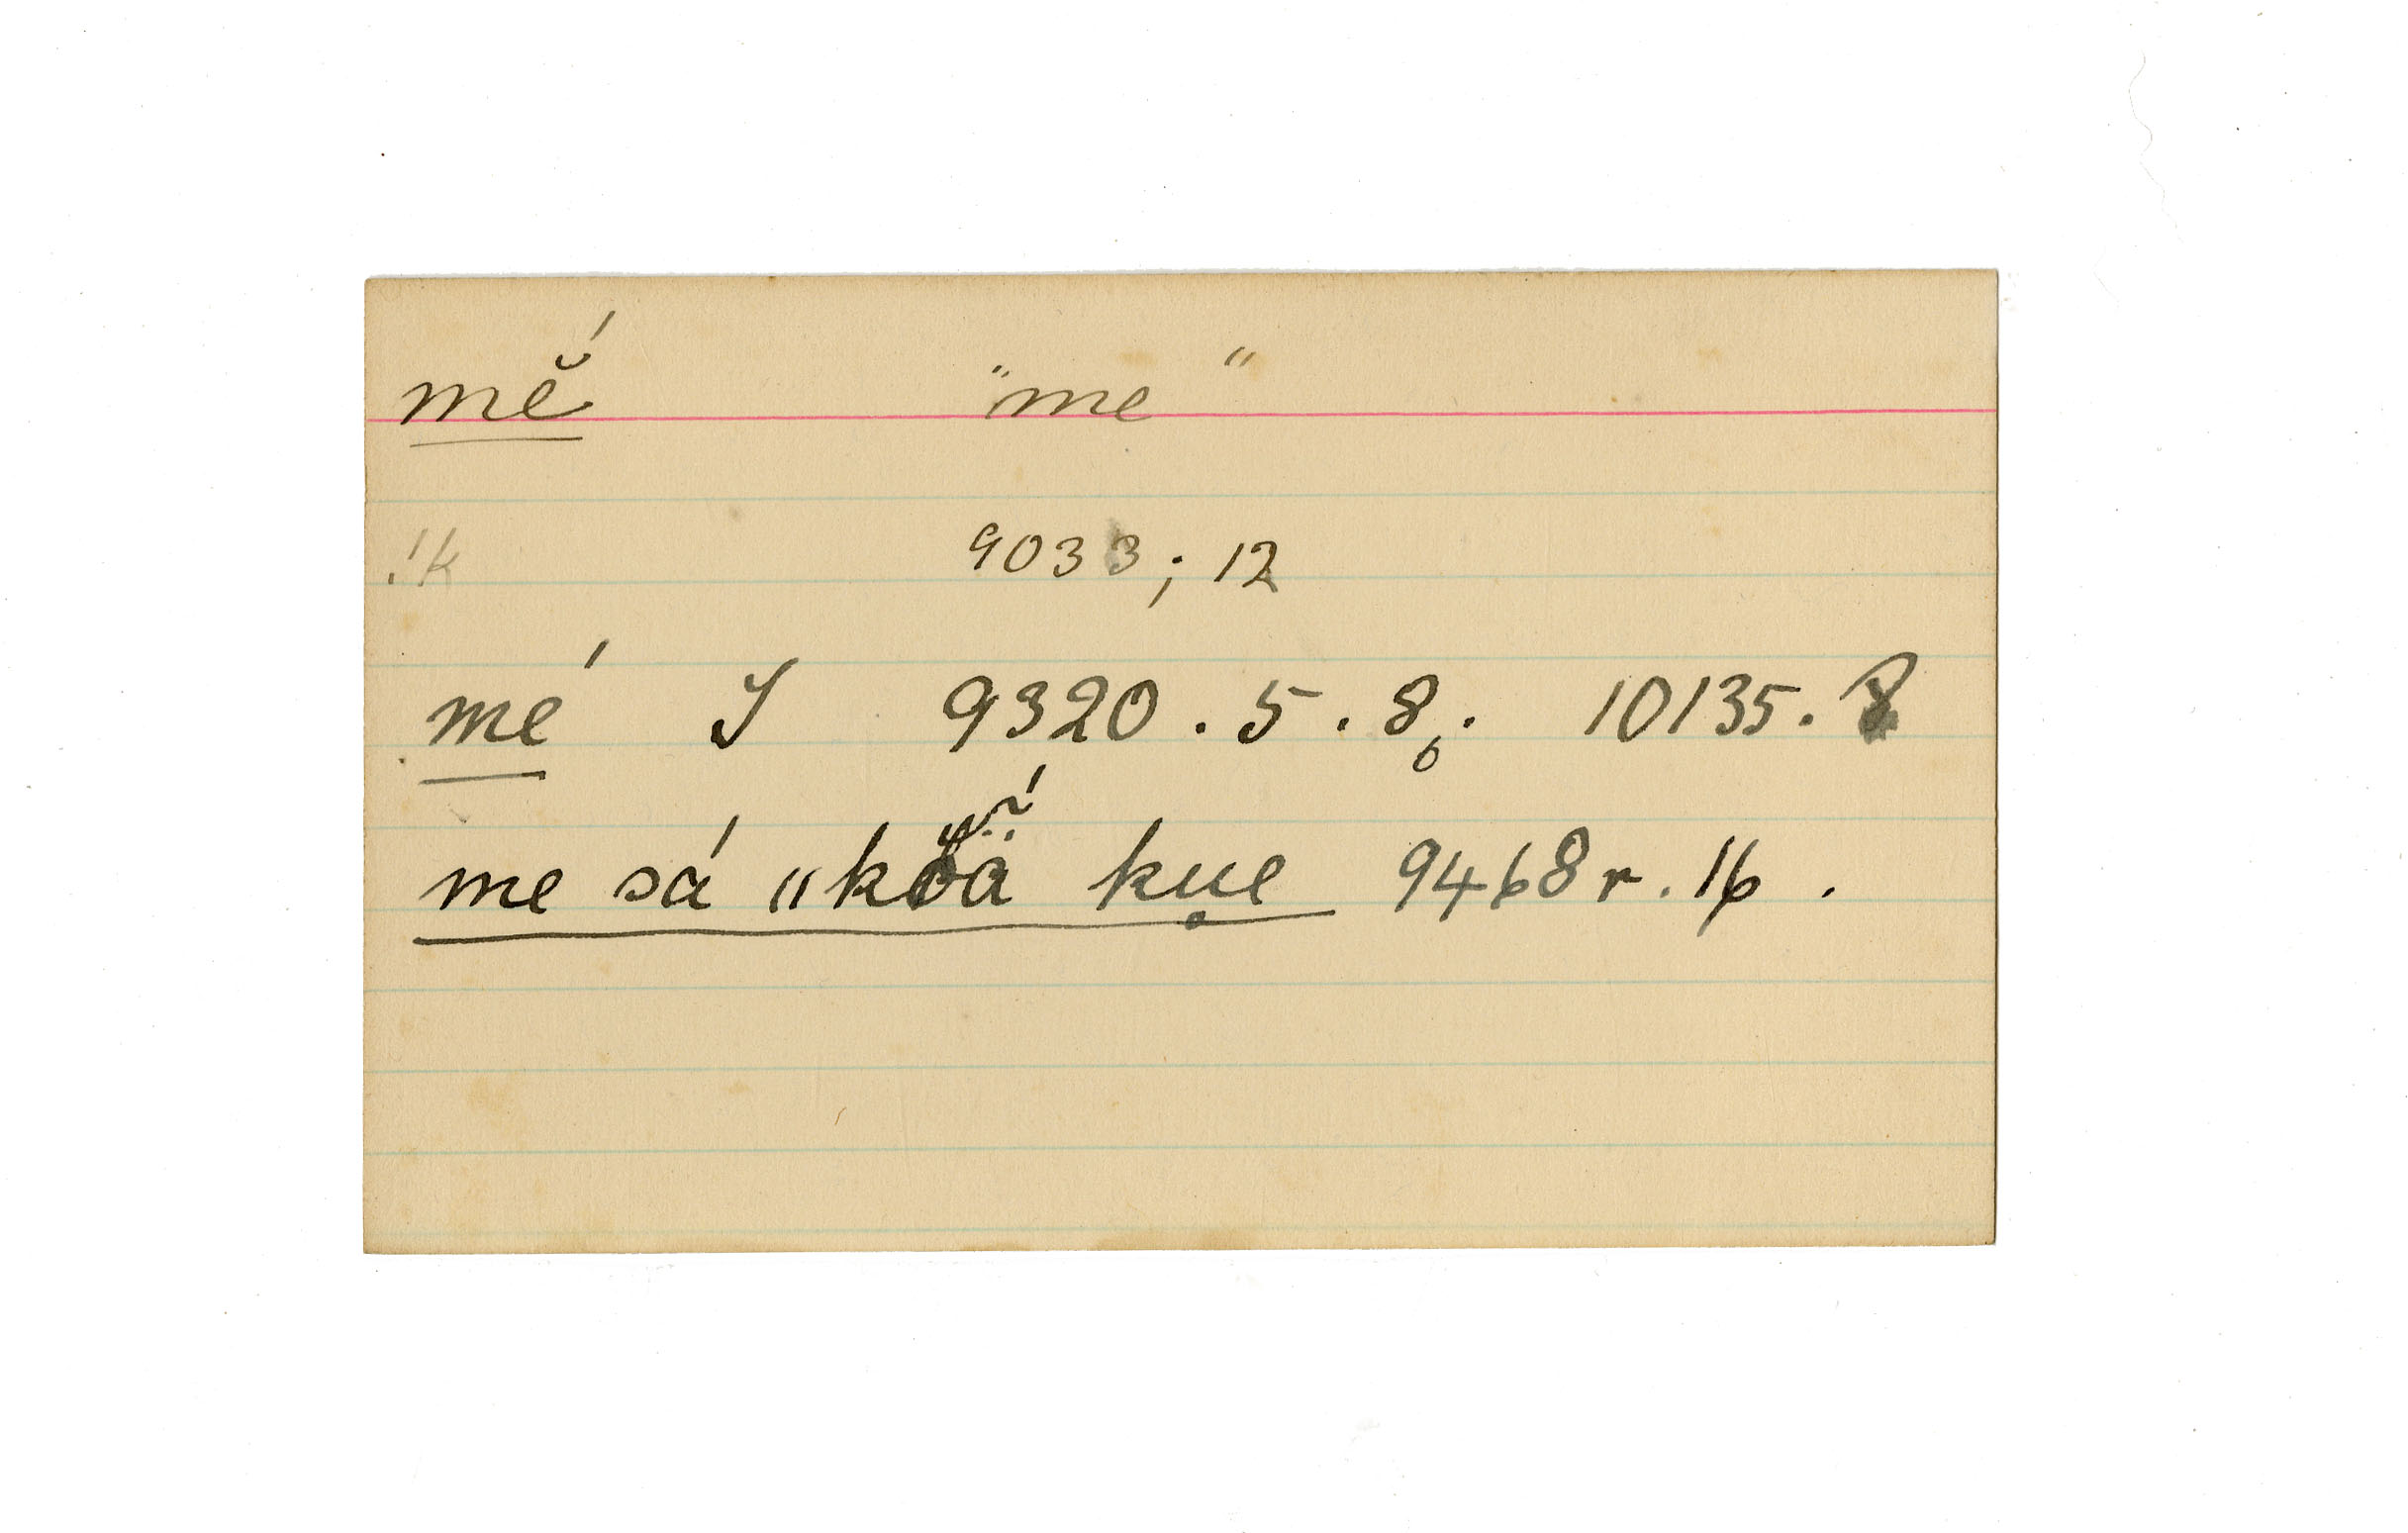 mĕ́ "me"
!k 9033; 12
mé I 9320.5.8. 10135.8
me sá "k kụe 9468r.16.